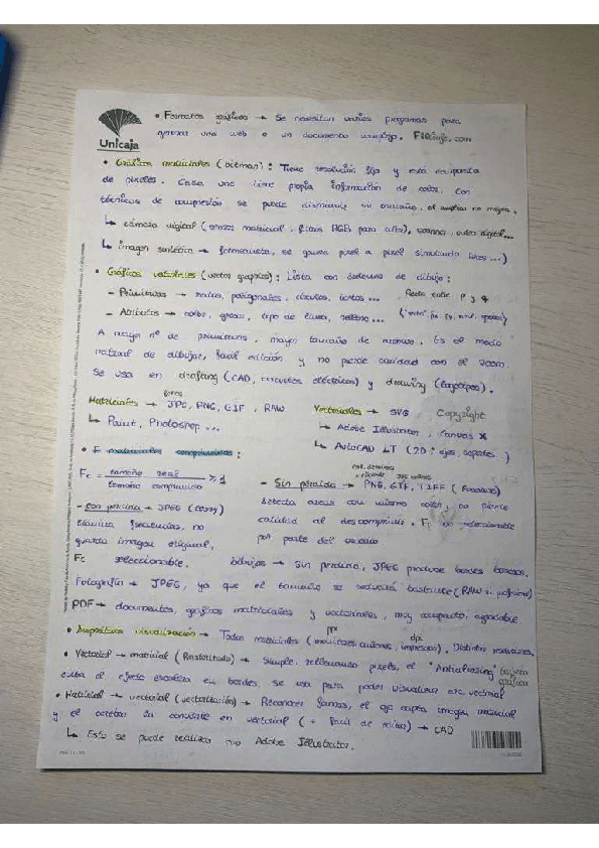 • Formatos gráficos → Se necesitan varios programas para
Unicaja
• Gráficos matriciales (bitmap): Tiene resolución fija y está compuesta
de píxeles. Cada uno tiene propia información de color. Con
técnicas de compresión se puede disminuir su tamaño, al ampliar no mejora.
↳ cámara digital (sensor matricial, filtros RGB para
↳ Imagen sintética → se genera pixel a pixel simulando luces ...)
• Gráficos vectoriales (vector graphics): Lista con órdenes de dibujo:
- Primitivas → poligonales, círculos, textos ...
- Atributos → color, grosor, tipo de línea, relleno ...
A mayor nº de primitivas, mayor tamaño de archivo. Es el modo
natural de dibujar, fácil edición y no pierde calidad con el zoom
Se usa en drafting (CAD, circuitos eléctricos) y drawing (logotipos).
Matriciales → JPG, PNG, GIF, RAW
Vectoriales → SVG Copyright
↳ Paint, Photoshop ...
↳ Adobe Illustrator, Canvas X
↳ AutoCAD LT (2D:
• F matriciales comprimidos:
Fc = tamaño real / tamaño comprimido ≥ 1
- Sin pérdida → PNG, GIF, TIFF
- Con pérdida → JPEG
detecta áreas con mismo color, no pierde
elimina frecuencias, no
calidad al descomprimir. Fc no seleccionable
guarda imagen original,
por parte del usuario
Fc seleccionable. Dibujos → Sin pérdida, JPEG produce bordes borrosos.
Fotografía → JPEG, ya que el tamaño se reducirá bastante (RAW si profesional)
PDF → documentos, gráficos matriciales y vectoriales, muy compacto,
ppi dpi
• Dispositivos visualización → Todos matriciales (monitores, impresoras). Distintas resoluciones.
• Vectorial → matricial (Rasterizado) → Simple, rellenando píxels, el "Antialiasing" tarjeta gráfica
evita el efecto escalera en bordes, se usa para poder visualizar arc. vectorial
• Matricial → vectorial (vectorización) → Reconocer formas, el ojo capta imagen matricial
y el cerebro la convierte en vectorial (+ fácil de → CAD
↳ Esto se puede realizar con Adobe Illustrator.